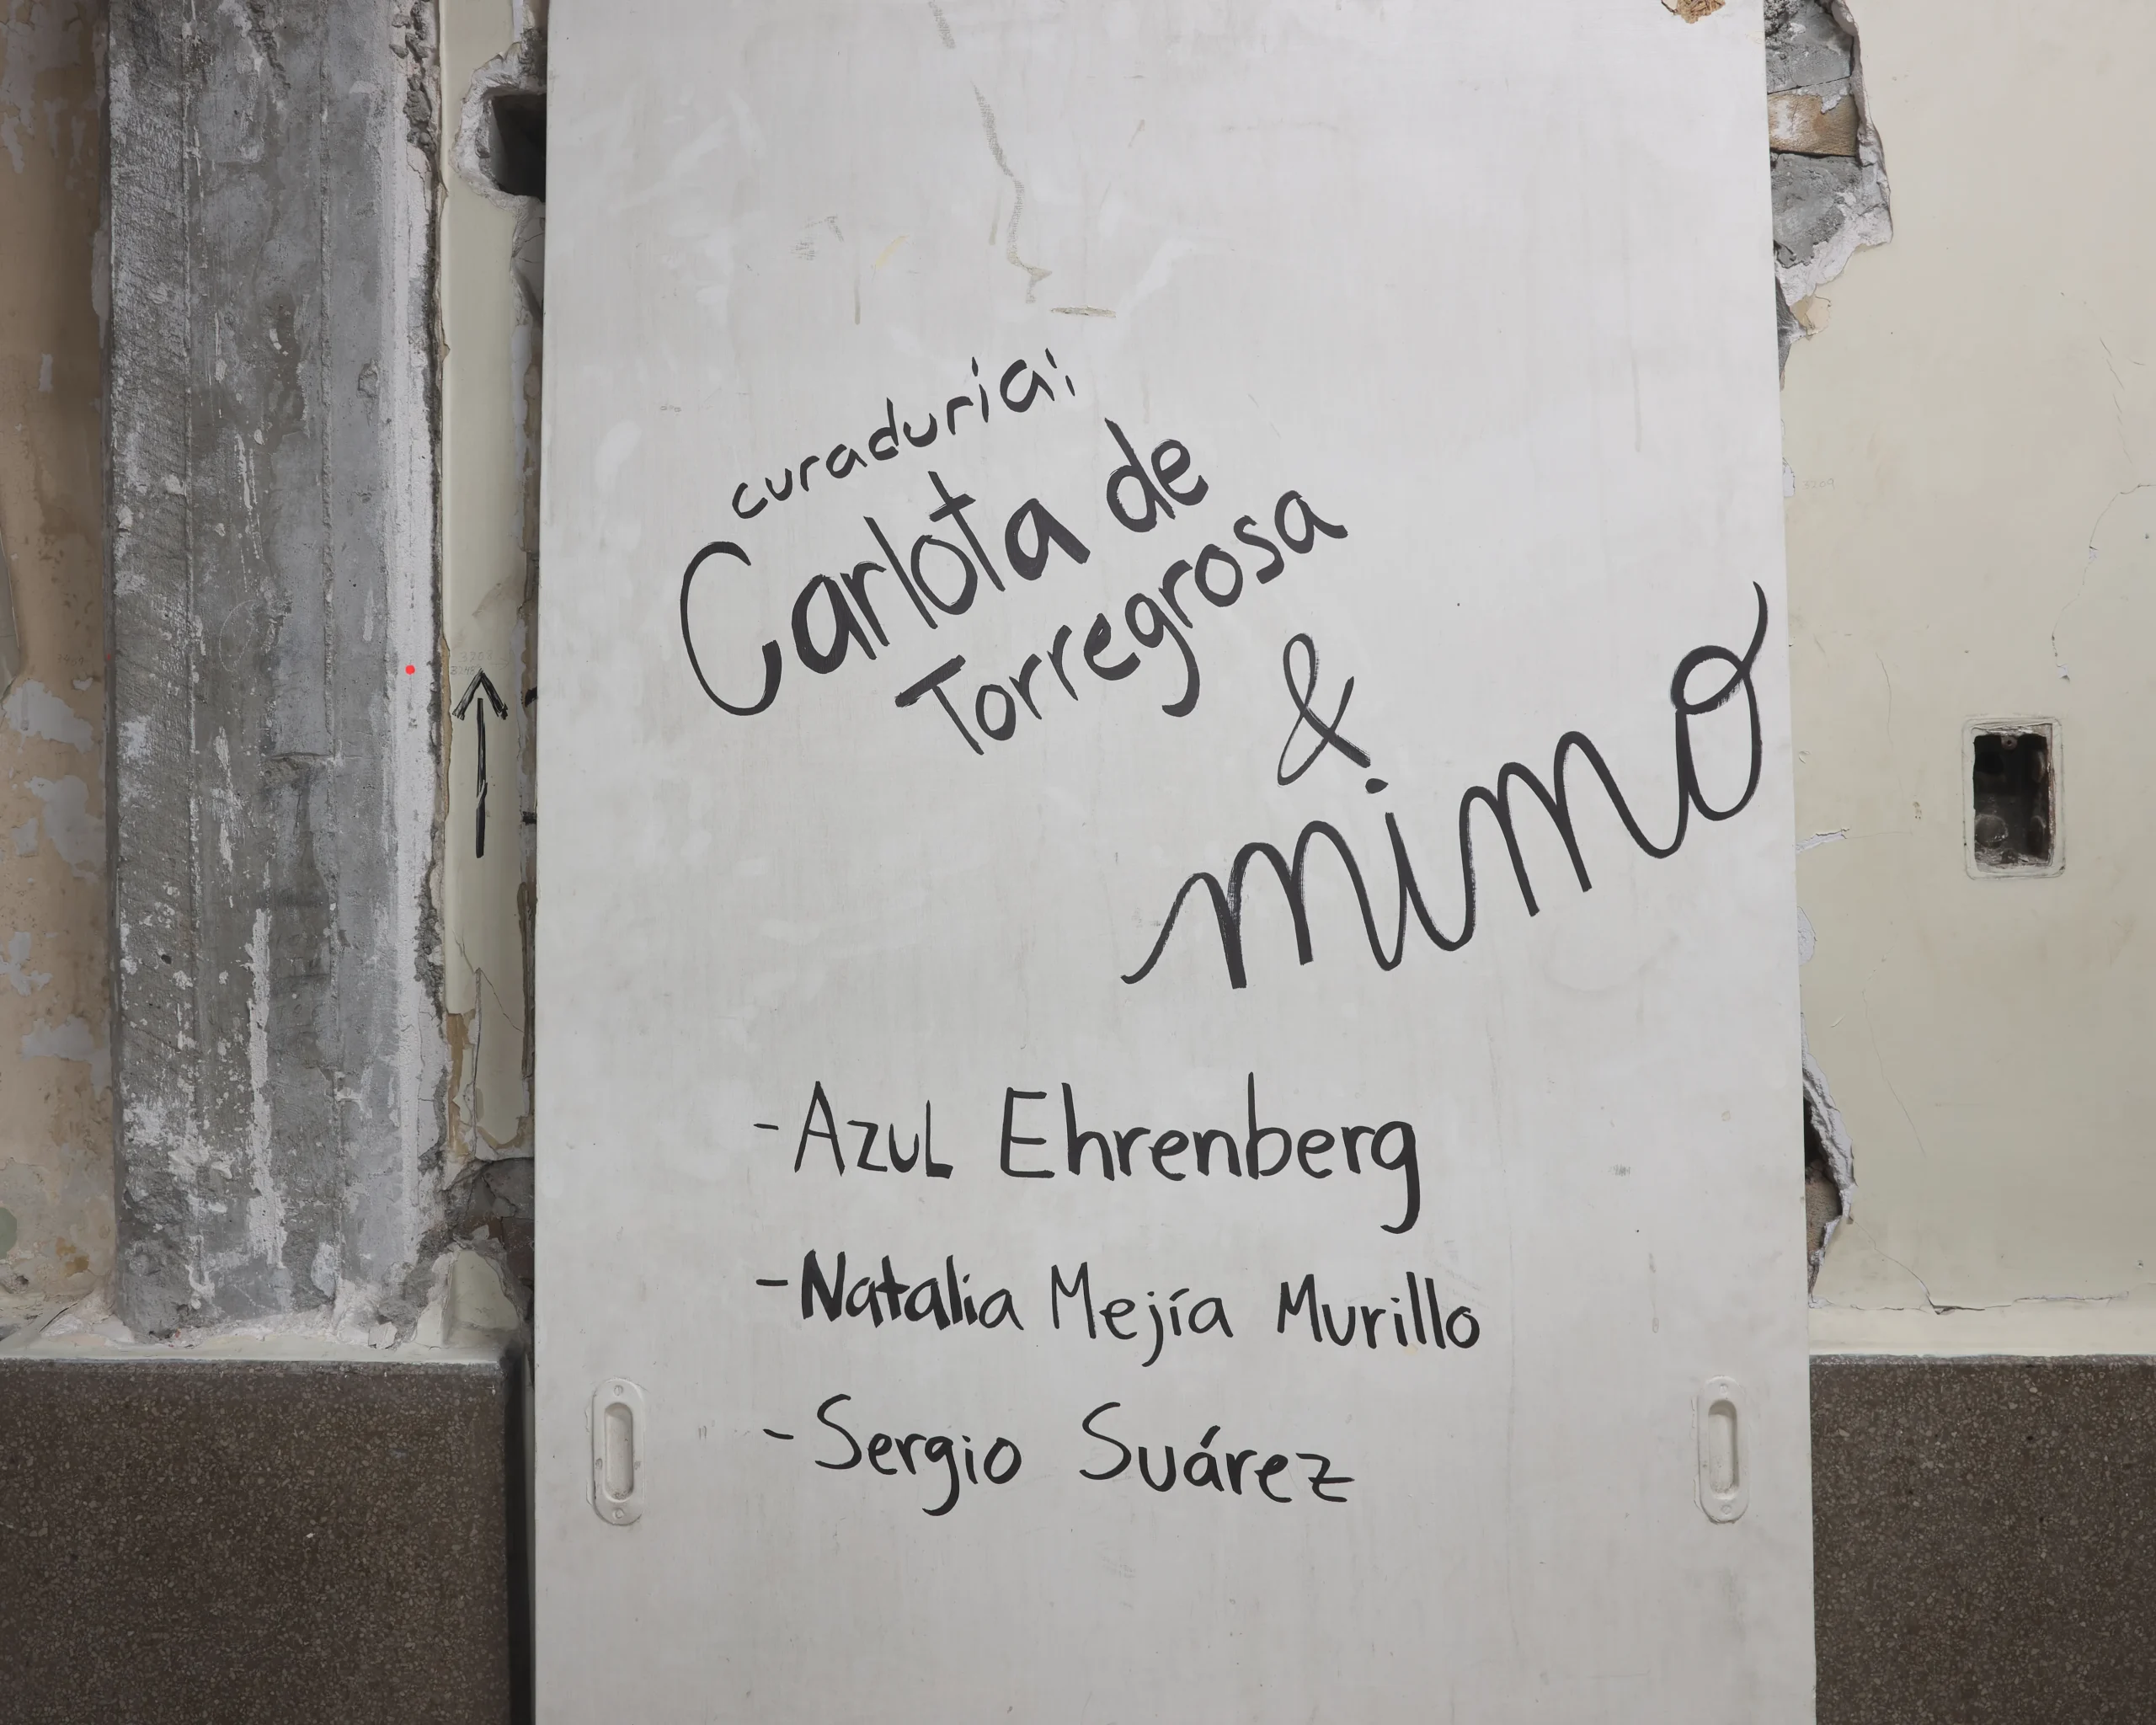 curaduría:
Carlota de
Torregrosa
&
mimo
-Azul Ehrenberg
-Natalia Mejía Murillo
-Sergio Suárez